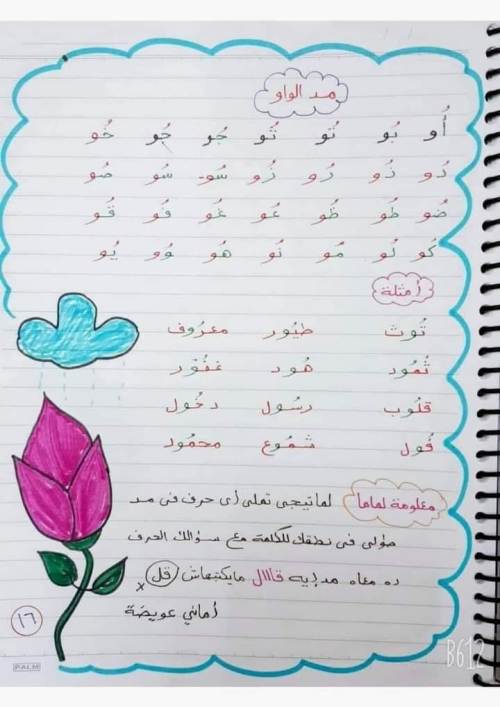 مد الواو
أُو بُو تُو ثُو جُو حُو خُو
دُو ذُو رُو زُو سُو شُو صُو
ضُو طُو ظُو عُو غُو فُو قُو
كُو لُو مُو نُو هُو وُو يُو
أمثلة
تُوت طيُور معرُوف
ثمُود هُود غفُور
قلُوب رسُول دخُول
فُول شمُوع محمُود
معلومة لماما لما تيجى تملى أى حرف فى مد
طولى فى نطقك للكلمة مع سؤالك الحرف
ده معاه مد إيه قااال مايكتبهاش قل x
أماني عويضة
١٦
PALM
B612